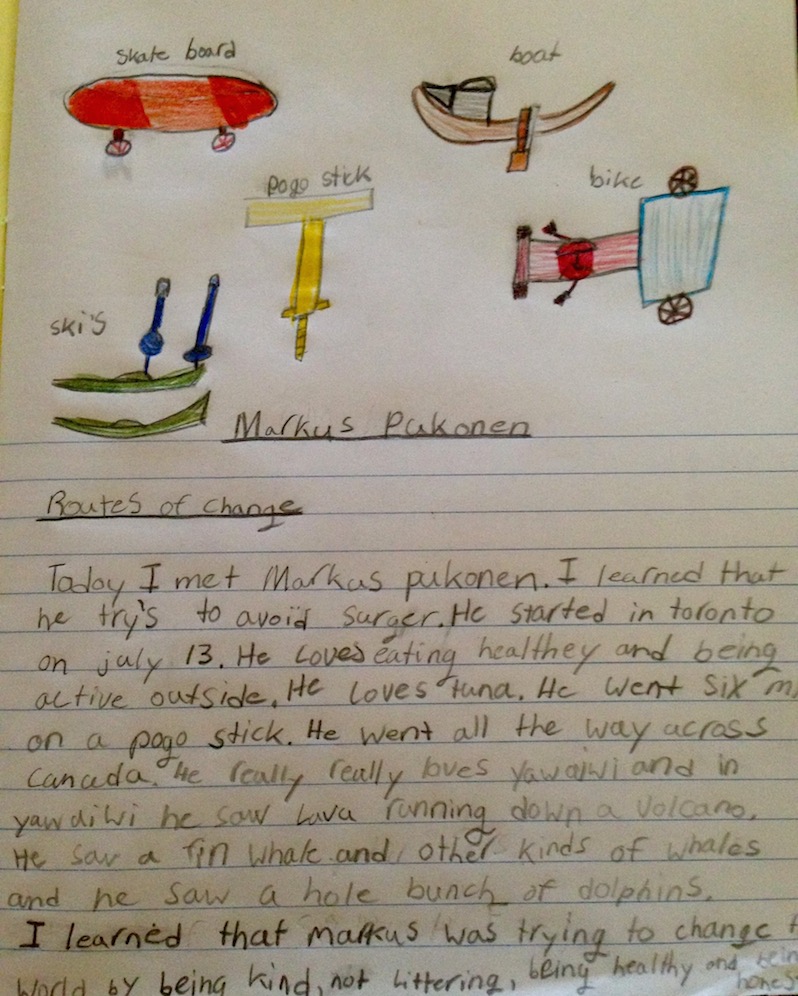 skate board
boat
pogo stick
bike
ski's
Markus Pukonen
Routes of change
Today I met Markus pukonen. I learned that
he try's to avoid surger. He started in toronto
on july 13. He loves eating healthey and being
active outside. He loves tuna. He went six
on a pogo stick. He went all the way across
canada. He really really loves yawaiwi and in
yawaiwi he saw lava running down a volcano.
He saw a fin whale and other kinds of whales
and he saw a hole bunch of dolphins.
I learned that markus was trying to change
world by being kind, not littering, being healthy and